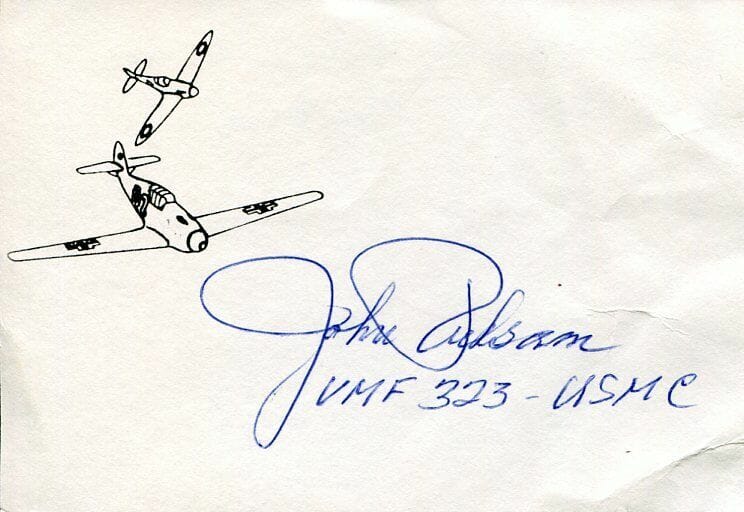 John Ruhsam
VMF 323 - USMC